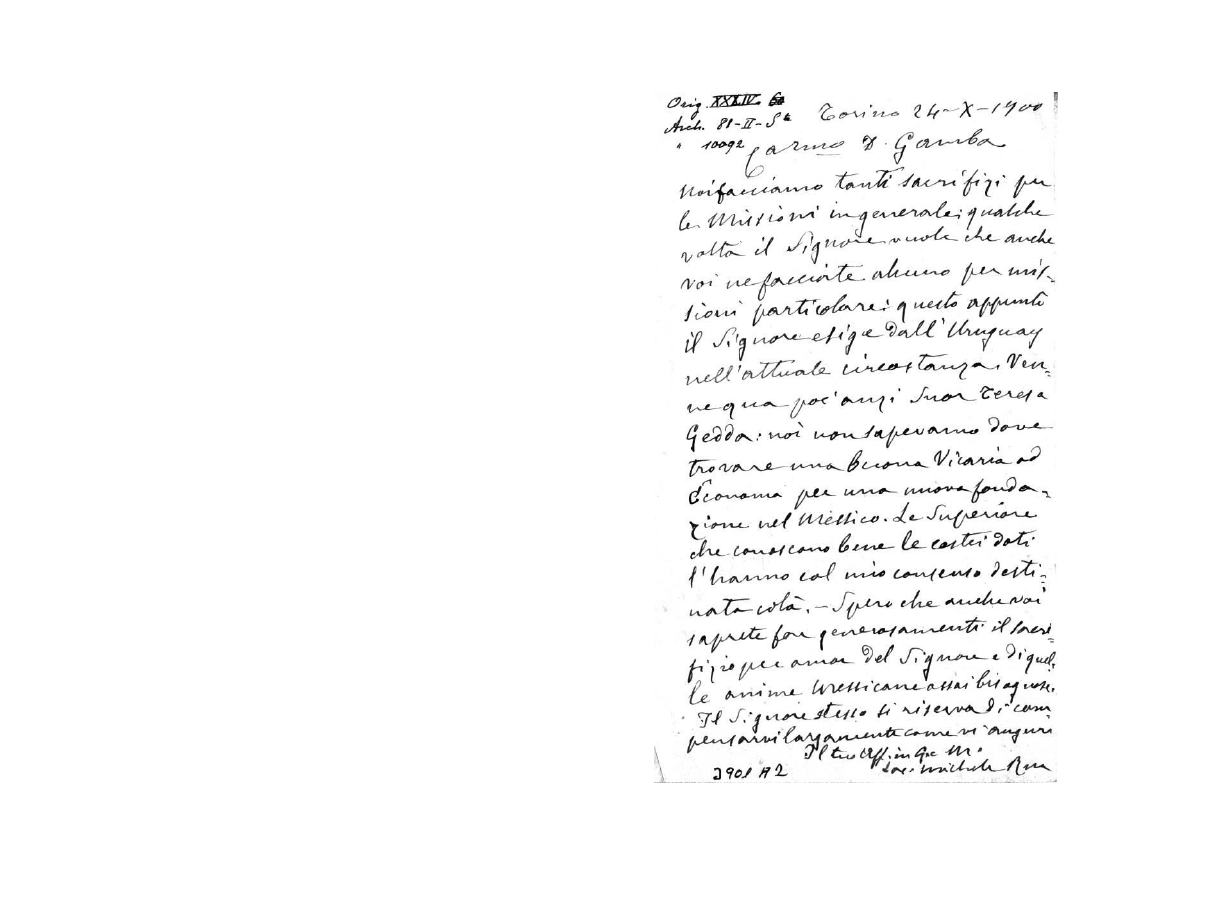 Orig. XXXIV. 6a
Arch. 81-II-Sa
" 10092
Torino 24-X-1900
Carmo D. Gamba
Noi facciamo tanti sacrifizi per
le Missioni in generale; qualche
volta il Signore vuole che anche
voi ne facciate alcuno per mis-
sioni particolare: questo appunto
il Signore esige dall'Uruguay
nell'attuale circostanza. Ven-
ne qua poc'anzi Suor Teresa
Gedda: noi non sapevamo dove
trovare una buona Vicaria ad
Economa per una nuova fonda-
zione nel Messico. Le Superiore
che conoscono bene le costei doti
l'hanno col mio consenso desti-
nata colà. - Spero che anche voi
saprete far generosamenti il sacri-
fizio per amor del Signore e di quel-
le anime Messicane assai bisognose.
Il Signore stesso si riserva di com
pensarvi largamente come vi auguri
Il tuo aff. in G. e M.
Sac. Michele Rua
3901 A2